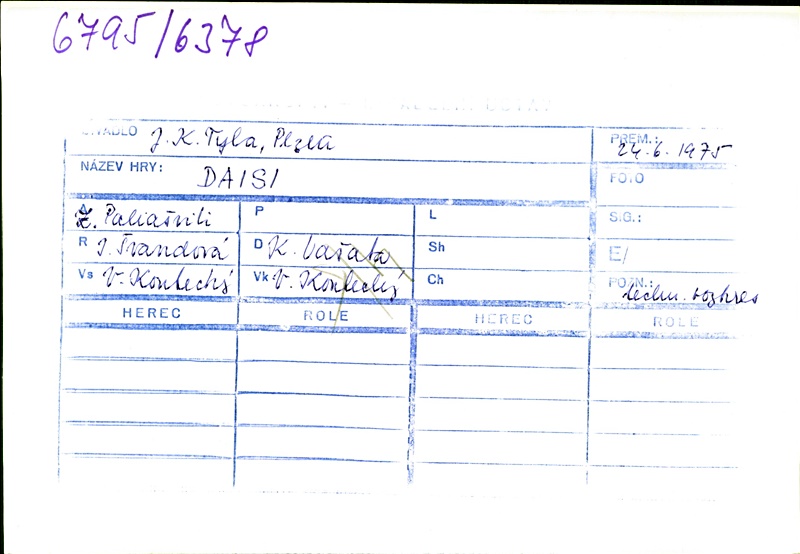 6795/6378
DIVADLO J. K. Tyla, Plzeň
PREM.: 24.6.1975
NÁZEV HRY: DAISI
FOTO
A Z. Paliašvili
P
L
S.G.:
R I. Švandová
D K. Vašata
Sh
E/
Vs V. Kontecký
Vk V. Kontecký
Ch
POZN.: techn.
HEREC ROLE HEREC ROLE